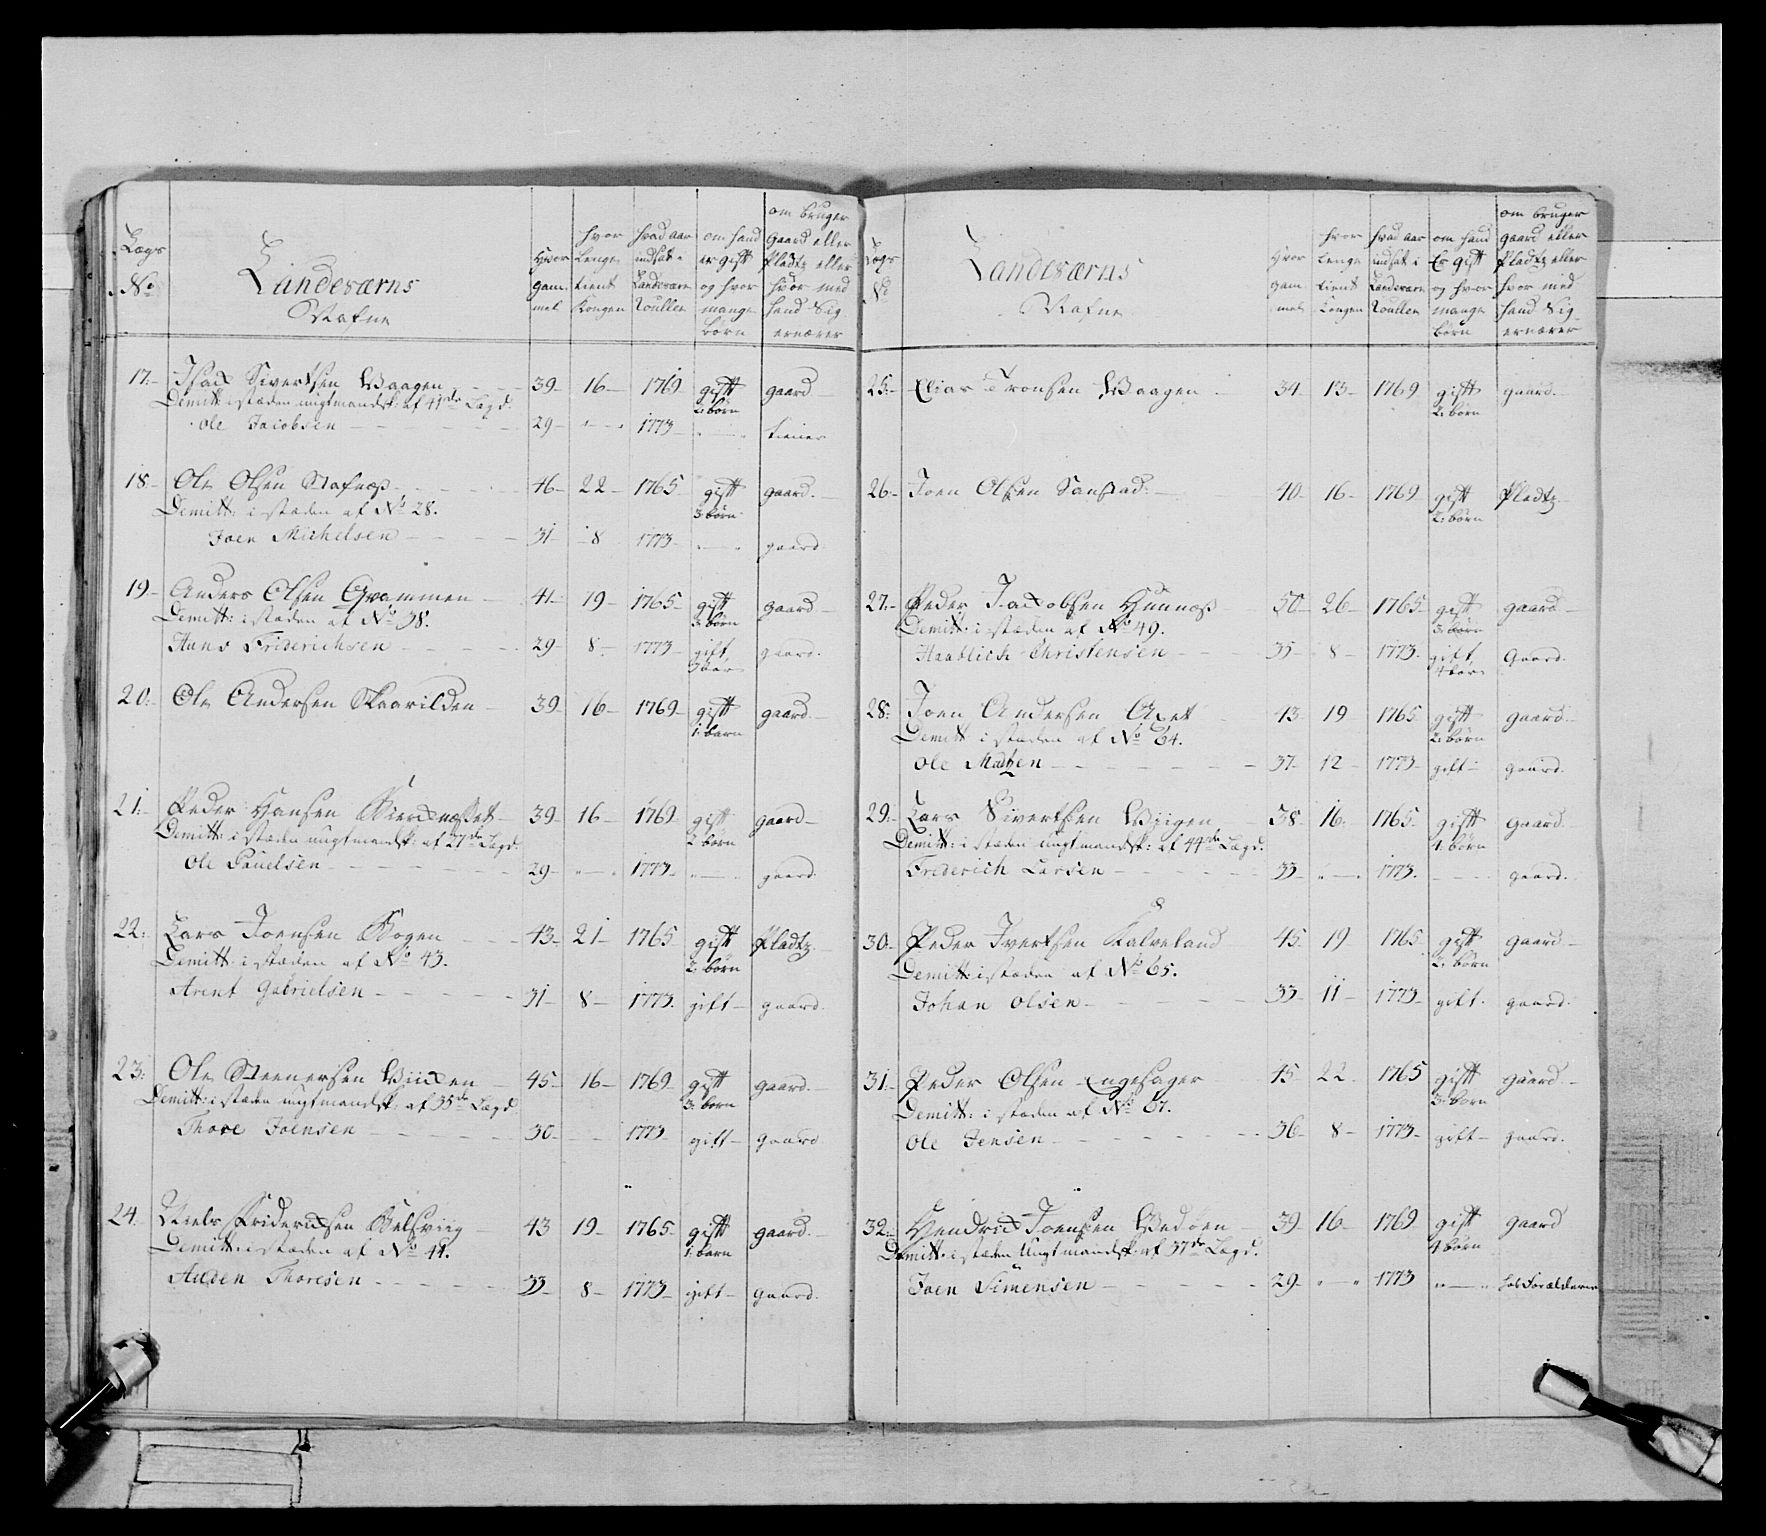 Lægs No
Landeværns Nafne
Hvor gammel
hvor Lenge tient Kongen
hvad aar indsat i Landeværn Roullen
om hand er gift og hvor mange børn
om bruger gaard eller Pladtz eller hvor med hand Sig ernærer
17. Isach Sivertsen Waagen 39 16 1769 gift 2 børn gaard
Demitt: i stæden ungtmandsk: af 41de Lægd.
Ole Jacobsen 29 " " 1773 " " tiener
18. Ole Olsen Stafnæs 46 22 1765 gift 3 børn gaard
Demitt: i stæden af No 28.
Joen Michelsen 31 8 1773 " " gaard
19. Anders Olsen Grammen 41 19 1765 gift 3 børn gaard
Demitt: i stæden af No 38.
Hans Friderichsen 29 8 1773 gift 3 bør gaard
20. Ole Andersen Skarvilden 39 16 1769 gift 1 barn gaard
21. Peder Hansen 39 16 1769 gift 2 børn gaard
Demitt: i stæden ungtmandsk: af 27de Lægd
Ole Pauelsen 29 " " 1773 " " gaard
22. Lars Joensen Bogen 43 21 1765 gift 2 børn Pladtz
Demitt: i stæden af No 43.
Arent Gabrielsen 31 8 1773 gift gaard
23. Ole Steenersen Viixen 45 16 1769 gift 3 børn gaard
Demitt: i stæden ungtmandsk: af 35de Lægd
Thore Joensen 30 1773 gift gaard
24. Niels Friderichsen 43 19 1765 gift 1 barn gaard
Demitt: i stæden af No 44.
Auden Thoresen 33 8 1773 gift gaard
Lægs No
Landeværns Nafne
Hvor gammel
hvor Lenge tient Kongen
hvad aar indsat i Landeværn Roullen
om hand Er gift og hvor mange børn
om bruger gaard eller Pladtz eller hvor med hand Sig ernærer
25. Elias Tronsen Waagen 34 13 1769 gift 2 børn gaard
26. Joen Olsen Sanstad 40 16 1769 gift 2 børn Pladtz
27. Peder Jacobsen Hunnæs 50 26 1765 gift 3 børn gaard
Demitt: i stæden af No 49.
Christensen 35 8 1773 gift 4 bør Gaard
28. Joen Andersen Axet 43 19 1765 gift 2 børn gaard
Demitt: i stæden af No 64.
Ole Madtzen 37 12 1773 gift gaard
29. Lars Sivertsen Wiigen 38 16 1765 gift 4 børn gaard
Demitt: i stæden ungtmandsk: af 44de Lægd.
Friderich Larsen 33 " " 1773 gaard
30. Peder Ivertsen Kalveland 45 19 1765 gift 2 børn gaard
Demitt: i stæden af No 65.
Johan Olsen 33 11 1773 gift gaard
31. Peder Olsen Engesager 45 22 1765 gift 3 børn gaard
Demitt: i stæden af No 67.
Ole Jensen 36 8 1773 gift gaard
32. Hendrich Joensen Wedøen 39 16 1769 gift 4 børn gaard
Demitt: i stæden Ungtmandsk: af 37de Lægd.
Joen Simensen 29 " " 1773 " " hos Forælderne